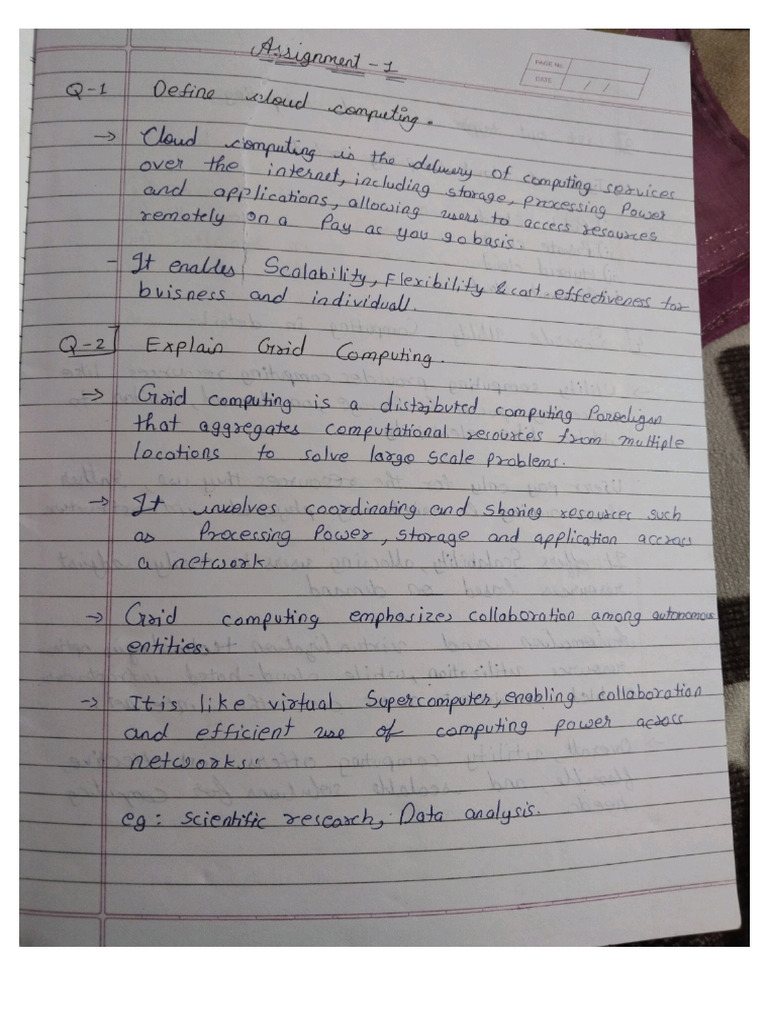 Assignment - 1
PAGE No.
DATE / /
Q-1 Define cloud computing.
→ Cloud computing is the delivery of computing services
over the internet, including storage, processing Power
and applications, allowing users to access resources
remotely on a Pay as you go basis.
- It enables Scalability, Flexibility & cost effectiveness for
buisness and individuall.
Q-2] Explain Grid Computing.
→ Grid computing is a distributed computing Paradigm
that aggregates computational resources from multiple
locations to solve large scale problems.
→ It involves coordinating and sharing resources such
as Processing Power, storage and application accross
a network
→ Grid computing emphasizes collaboration among autonomous
entities.
→ It is like virtual Supercomputer, enabling collaboration
and efficient use of computing power across
networks.
eg: scientific research, Data analysis.